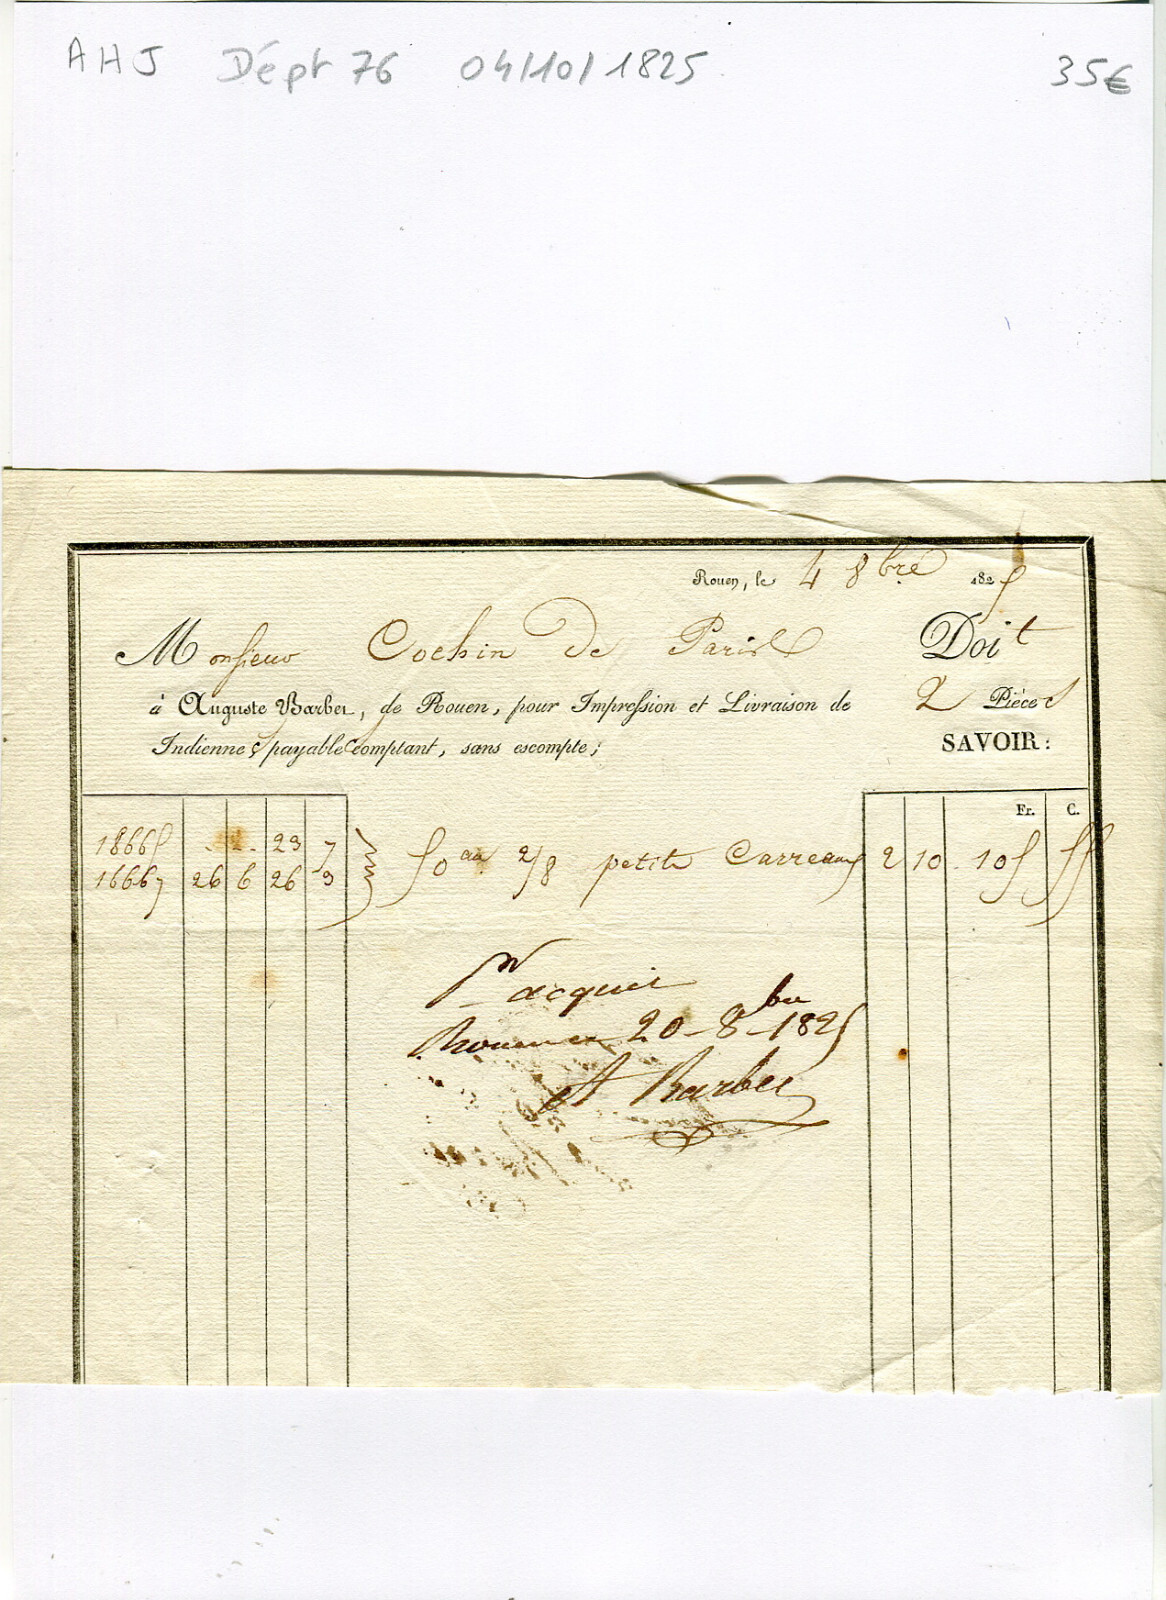 AHJ Dépt 76 04/10/1825 35€
Rouen, le 4 8bre 1825
Monsieur Cochin De Paris Doit
à Auguste Barbet, de Rouen, pour Impression et Livraison de 2 Pièces
Indiennes payable comptant, sans escompte; SAVOIR:
Fr. C.
18665 23 7
16667 26 6 26 9
50 au 2/8 petits Carreaux 2 10 105 55
Pr acquit
Rouen 20 8bre 1825
A Barbet